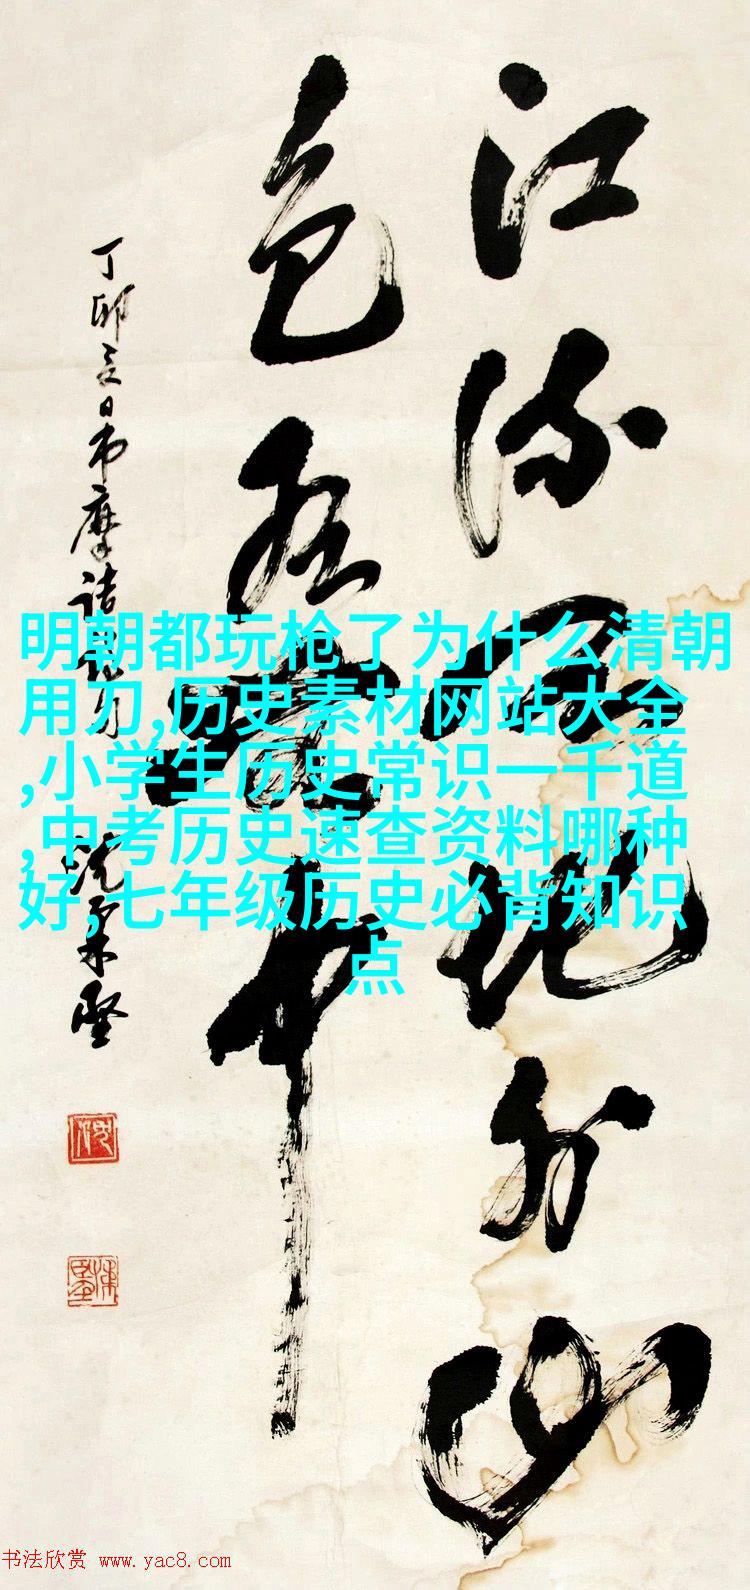 江流天地外山
色有無中
丁卯夏日书摩诘句
沈柔坚
明朝都玩枪了为什么清朝
用刀,历史素材网站大全
,小学生历史常识一千道
,中考历史速查资料哪种
好,七年级历史必背知识
点
书法欣赏 www.yac8.com